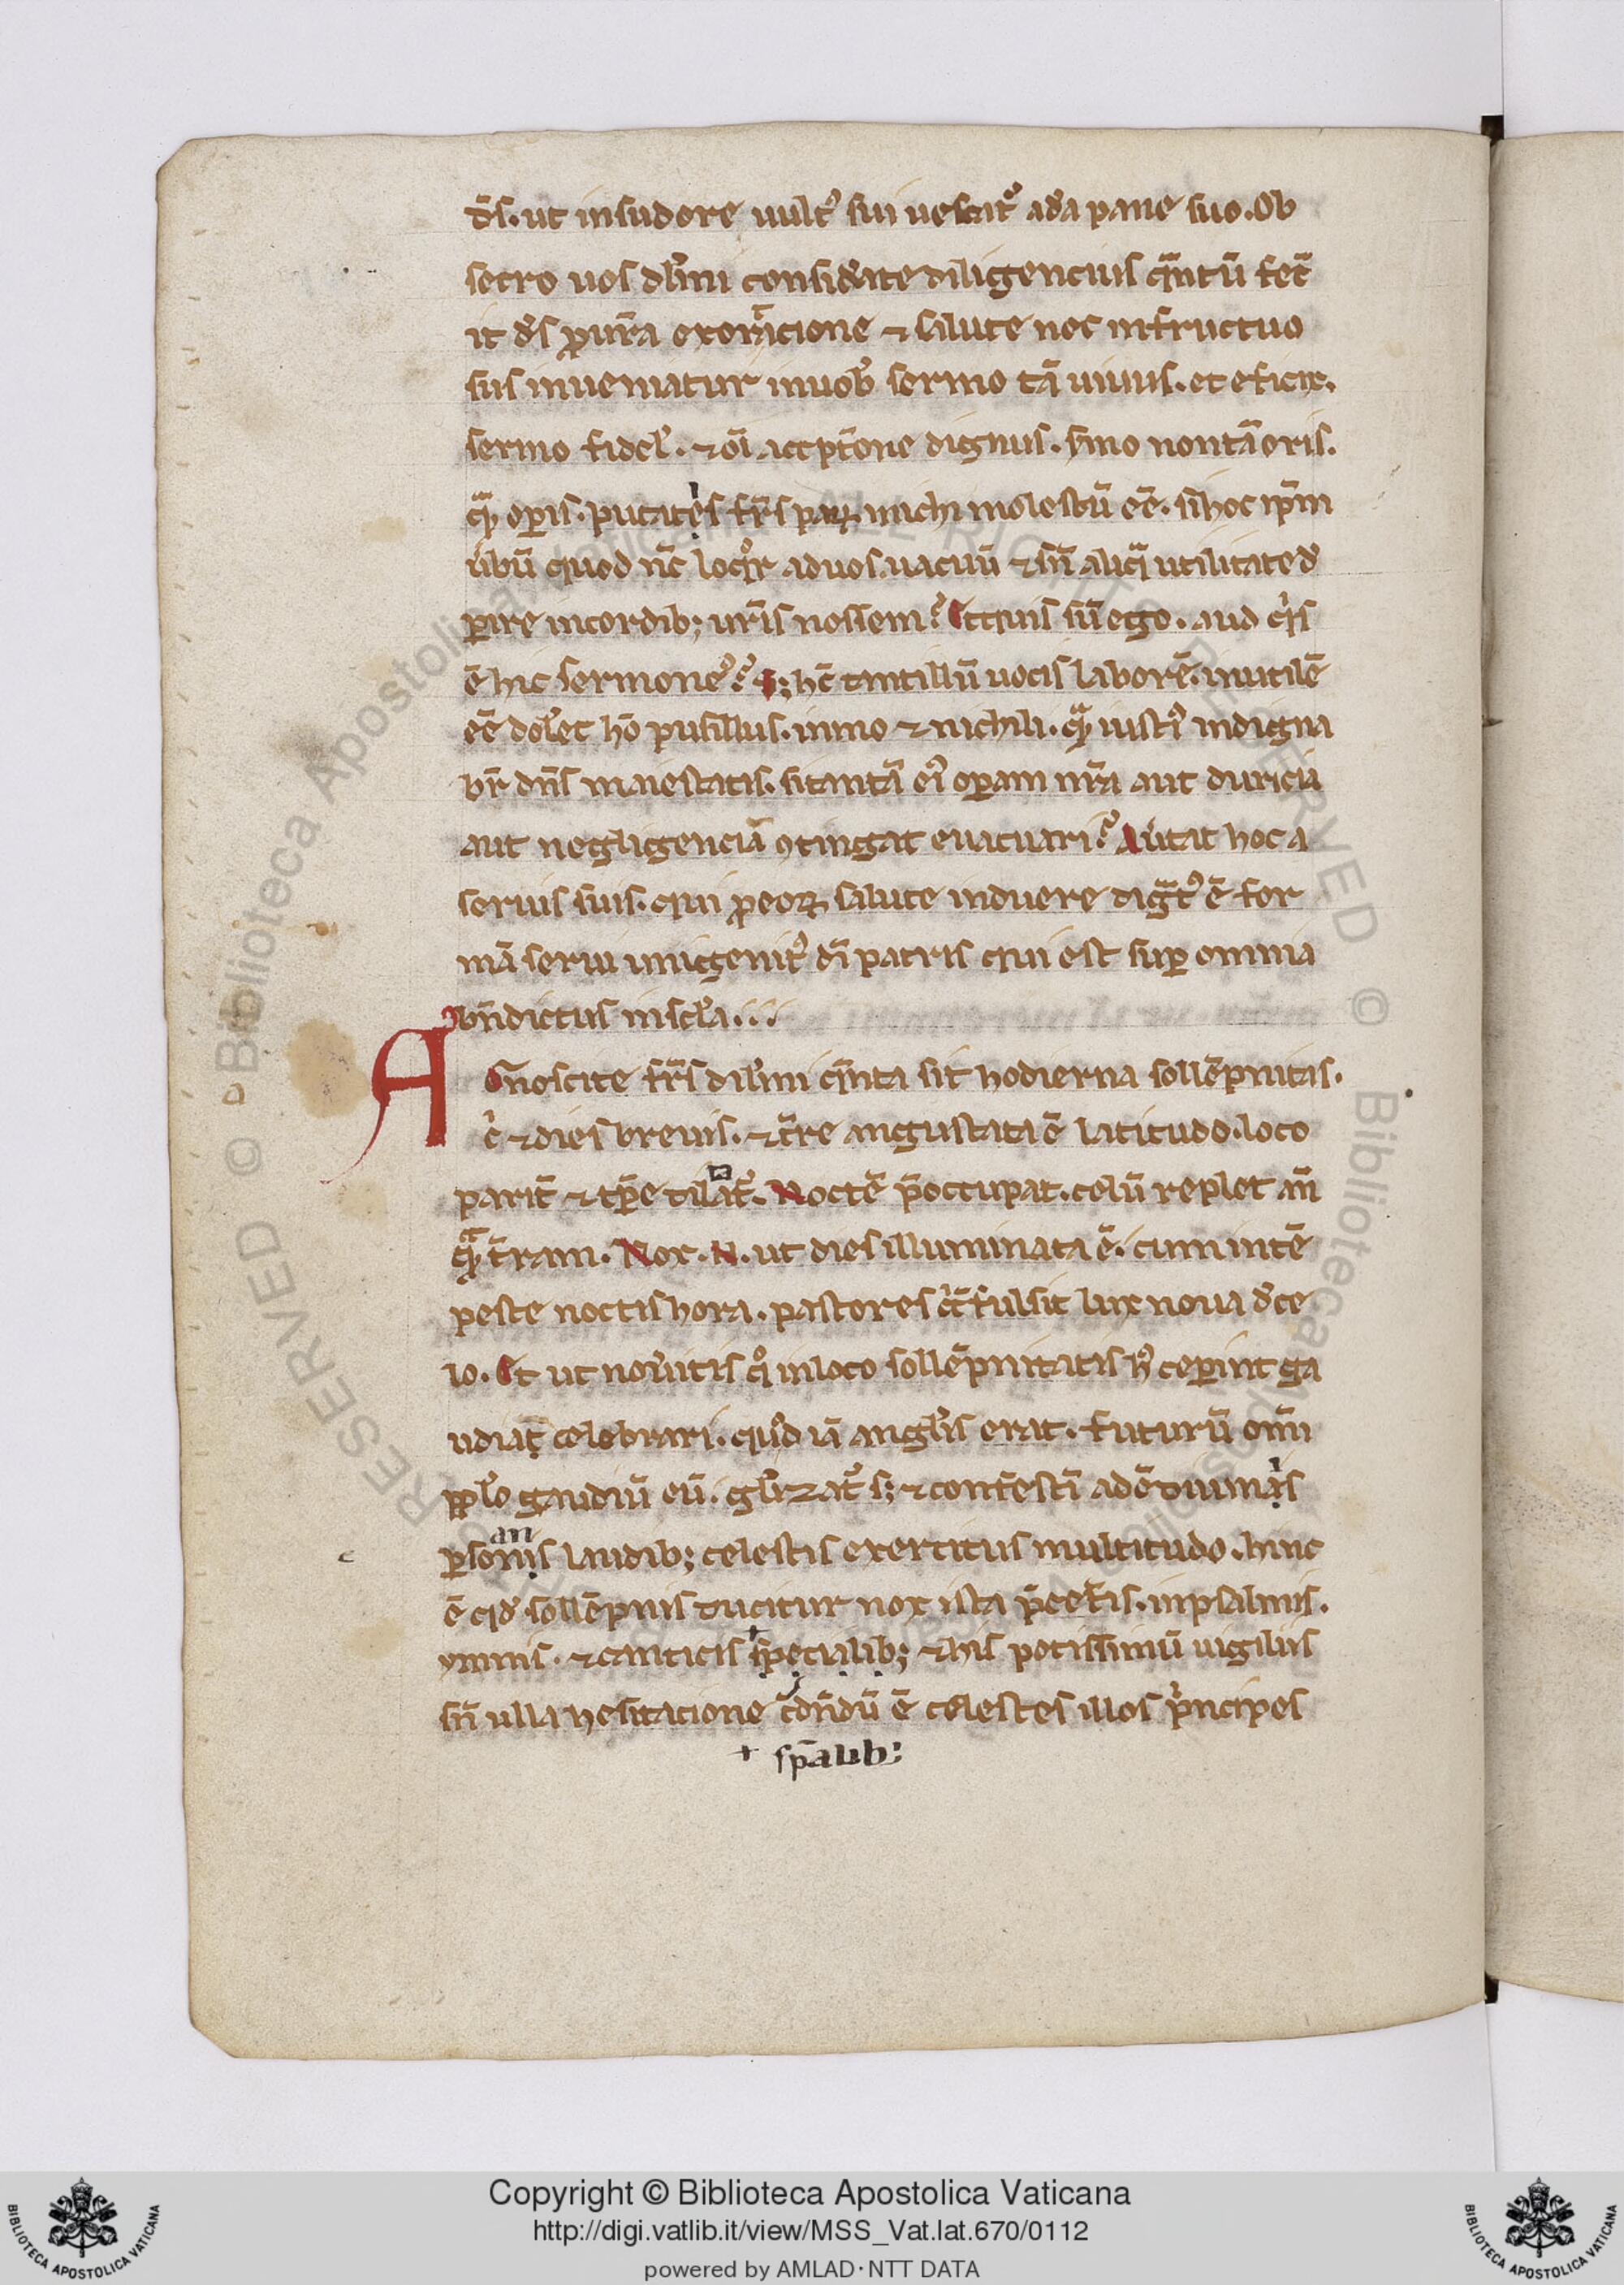 d̄s. ut insudore uult᾿ sui uescat᷑ ada pane suo. Ob
secro uos dl̄mi considate diligencius qͣntū fec̄
it ds ꝓ ur̄a exortacione ⁊ salute nec infructuo
sus inueniatur inuob̾ sermo tā uiuus. et eficax.
sermo fidel̾. ⁊ oī accpt̄one dignus. ymo nontā oris.
qͣꝫ oꝑis. putatis fr̄s paꝝ michi molestū eē. si hoc ip̄m
ubū quod nc̄ loqͦr aduos uacuū ⁊ sn̄ aliqͣ utilitate d
ꝑire incordib; ur̄is nossem? Et quis sū ego. aud qͥs
ē hic sermone᾿? S; hc̄ tantillū uocis laborē. inutilē
eē dolet ho pusillus. inmo ⁊ nichili. qͣꝫ iusti᾿ indigna
br̄ dn̄s maiestatis. si tantā ei᾿ oꝑam nr̄a aut duricia
aut negligenciā ꝯtingat euacuari? Autat hoc a
seruis suis. qui ꝓ eoꝝ salute induere dignat᾿ ē for
mā serui unigenit᾿ dī patris qui est suꝑ omnia
bn̄dictus inscl̄a...
Agnoscite fr̄s dil̄mi qͣnta sit hodierna sollēpnitas.
cͥ ⁊ dies breuis. ⁊ tr̄re angustata ē latitudo. loco
parit᷑ ⁊ tp̄e dilat᷑. Noctē p̄occupat. celū replet an̄
qͣꝫ t̄ram. Nox. N. ut dies illuminata ē. cum intē
peste noctis hora. pastores cͥc̄fulsit lux noua d ce
lo. Et ut nouitis qͦ inloco sollēpnitatis hͦ ceꝑint ga
udia celebrari. qd̄ iā angl̄is erat. futurū om̄i
ppl̄o gaudiū eū. gl̄izat᷑ s; ⁊ confestī adē diuinis
ꝑsonis laudib; celestis exercitus multitudo. hinc
an
ē qd sollēpnis ducitur nox ista p̄ cet̄is. inpsalmis.
ymnis. ⁊ canticis sp̄ecialib; ⁊ his potissimū uigiliis
sn̄ ulla hesitacione c̄dn̄dū ē celestes illos pͥncipes
+ sp̄alib:
Copyright © Biblioteca Apostolica Vaticana
http://digi.vatlib.it/view/MSS_Vat.lat.670/0112
powered by AMLAD·NTT DATA
BIBLIOTECA APOSTOLICA VATICANA
BIBLIOTECA APOSTOLICA VATICANA